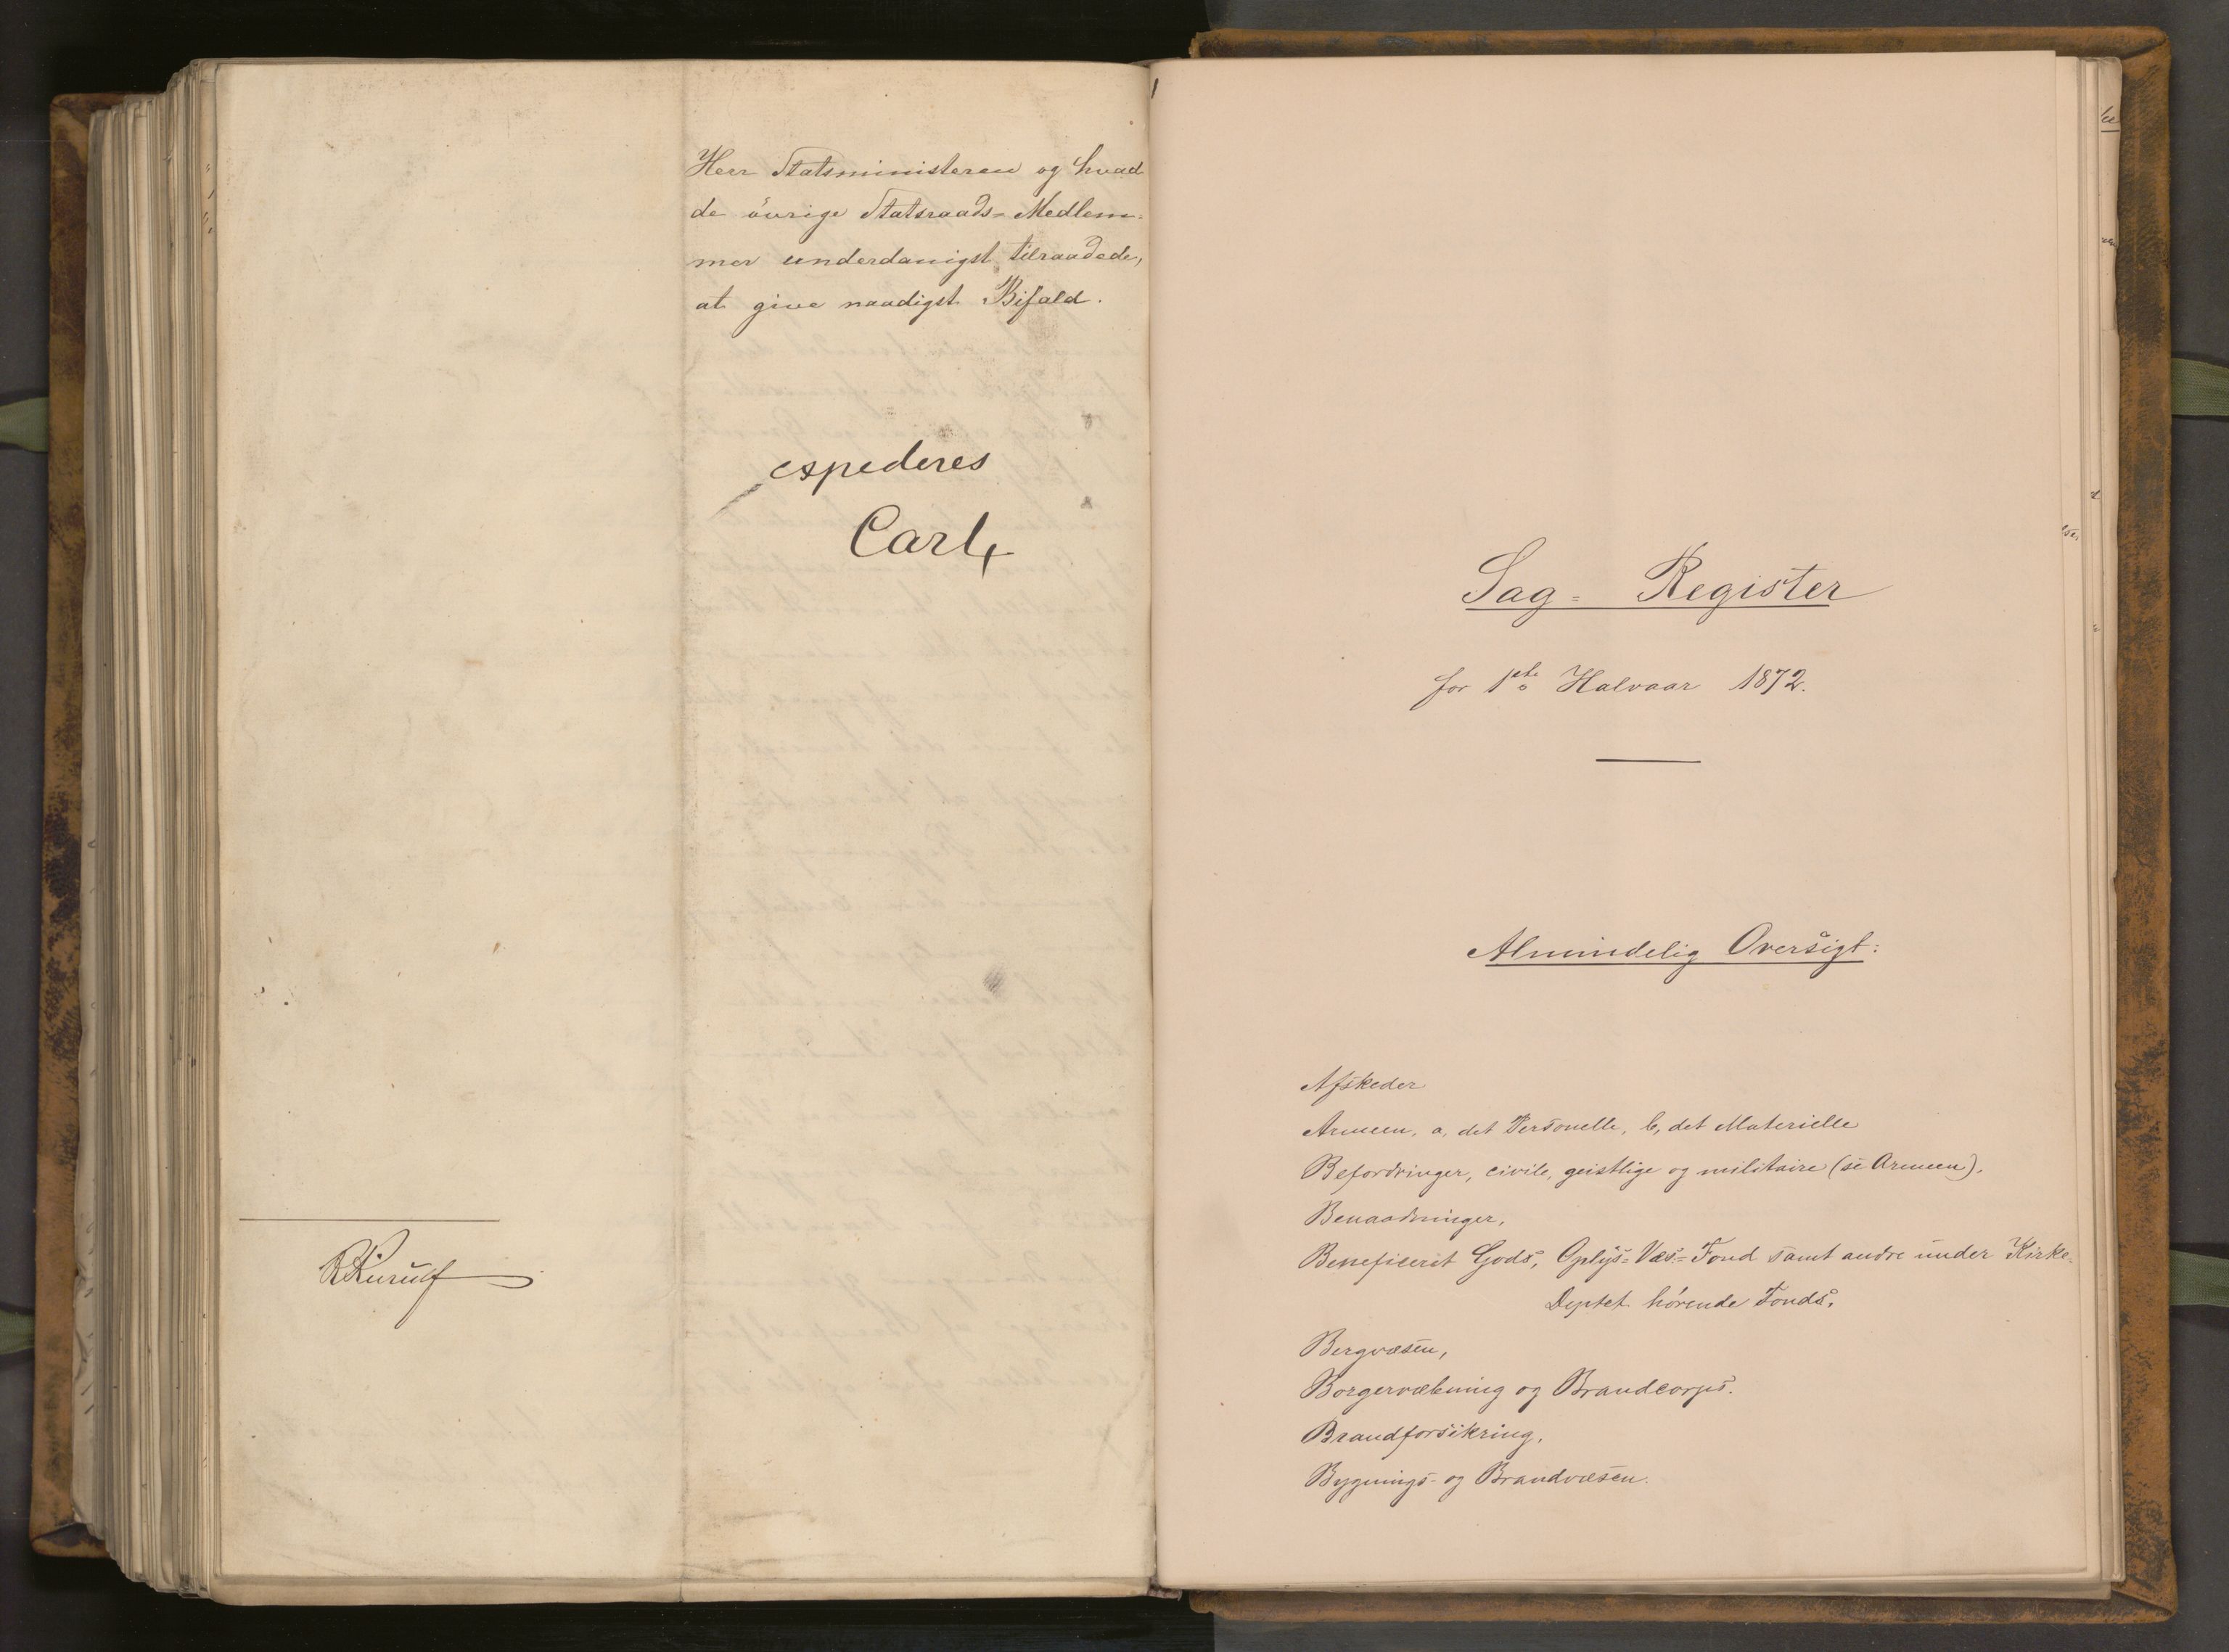 Herr Statsministeren og hvad
de övrige Statsraads-Medlem-
mer underdanigst tilraadede,
at give naadigst Bifald.
expederes
Carl
Sag-Register
for 1ste Halvaar 1872.
Almindelig Oversigt:
Afskeder
Armeen, a, det Personelle, b, det Materielle
Befordringer, civile, geistlige og militaire (se Armeen).
Benaadninger,
Beneficeret Gods, Oplys-Væs-Fond samt andre under Kirke-
Deptet hörende Fonds.
Bergvæsen,
Borgervæbning og Brandcorps.
Brandforsikring.
Bygnings- og Brandvæsen.